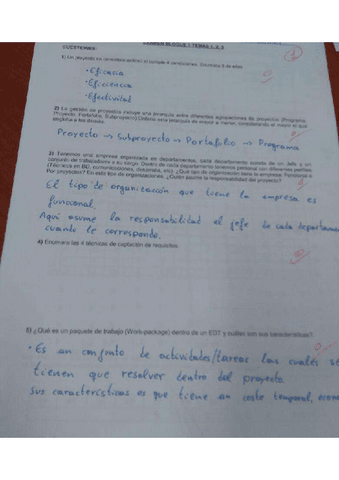 EXAMEN BLOQUE I TEMAS 1, 2, 3
CUESTIONES:
1) Un proyecto se considera exitoso si cumple 4 condiciones. Enumera 3 de ellas
• Eficacia
• Eficiencia
• Efectividad
2) La gestión de proyectos incluye una jerarquía entre diferentes agrupaciones de proyectos (Programa,
Proyecto, Portafolio, Subproyecto) Defina esta jerarquía de mayor a menor, considerando el mayor el que
engloba a los demás.
Proyecto → Subproyecto → Portafolio → Programa
3) Tenemos una empresa organizada en departamentos, cada departamento consta de un Jefe y un
conjunto de trabajadores a su cargo. Dentro de cada departamento tenemos personal con diferentes perfiles
(Técnicos en BD, comunicaciones, desarrollo, etc). ¿Qué tipo de organización tiene la empresa: Funcional o
Por proyectos? En este tipo de organizaciones, ¿Quién asume la responsabilidad del proyecto?
El tipo de organización que tiene la empresa es
funcional.
Aquí asume la responsabilidad el jefe de cada departamen
cuando le corresponde.
4) Enumera las 4 técnicas de captación de requisitos.
5) ¿Qué es un paquete de trabajo (Work-package) dentro de un EDT y cuáles son sus características?
• Es un conjunto de actividades/tareas las cuales se
tienen que resolver dentro del proyecto.
sus características es que tiene un coste temporal, econ